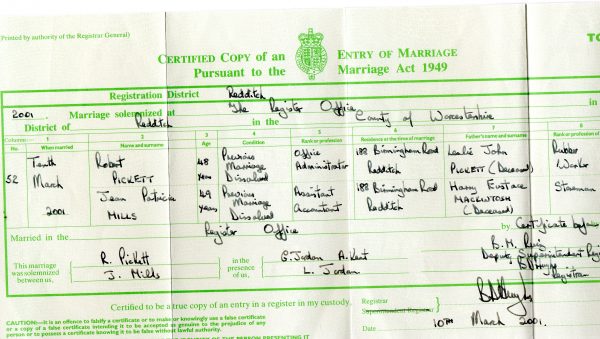 (Printed by authority of the Registrar General)
TO
CERTIFIED COPY of an ENTRY OF MARRIAGE
Pursuant to the Marriage Act 1949
Registration District Redditch
2001. Marriage solemnized at The Register Office in
District of Redditch in the County of Worcestershire
Columns:— 1 2 3 4 5 6 7 8
No. When married Name and surname Age Condition Rank or profession Residence at the time of marriage Father's name and surname Rank or profession of
Tenth Robert 48 Previous Office 188 Birmingham Road Leslie John Rubber
52 March PICKETT years Marriage Administrator Redditch PICKETT (Deceased) Worker
Dissolved
Jean Patricia 49 Previous Assistant 188 Birmingham Road Harry Eustace Storeman
2001 MILLS years Marriage Accountant Redditch MACKINTOSH
Dissolved (Deceased)
Married in the Register Office by Certificate before
This marriage was solemnized between us,
R. Pickett
J. Mills
in the presence of us,
G. Jordan A. Kent
L. Jordan
B. M.
Deputy Superintendent Registrar
Registrar
Certified to be a true copy of an entry in a register in my custody.
Registrar
Superintendent Registrar
Date 10TH March 2001.
CAUTION:—It is an offence to falsify a certificate or to make or knowingly use a false certificate
or a copy of a false certificate intending it to be accepted as genuine to the prejudice of any
person or to possess a certificate knowing it to be false without lawful authority.